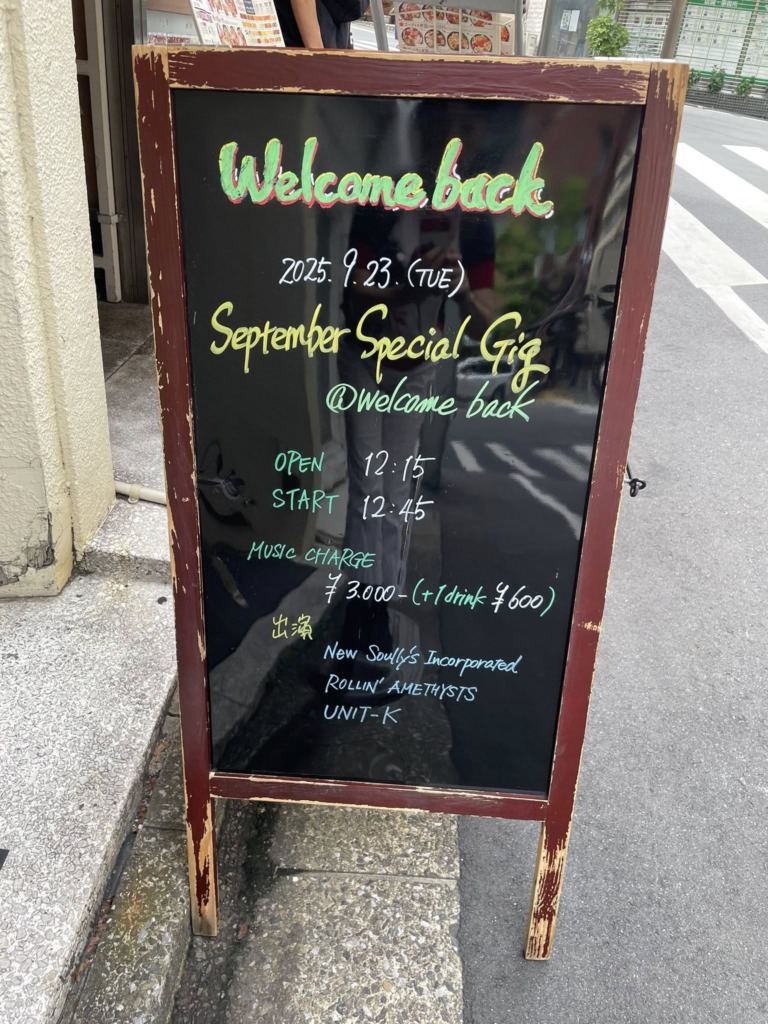 Welcome back
2025. 9. 23. (TUE)
September Special Gig
@Welcome back
OPEN 12:15
START 12:45
MUSIC CHARGE
¥3.000- (+1drink ¥600)
出演
New Soully's Incorporated
ROLLIN' AMETHYSTS
UNIT-K